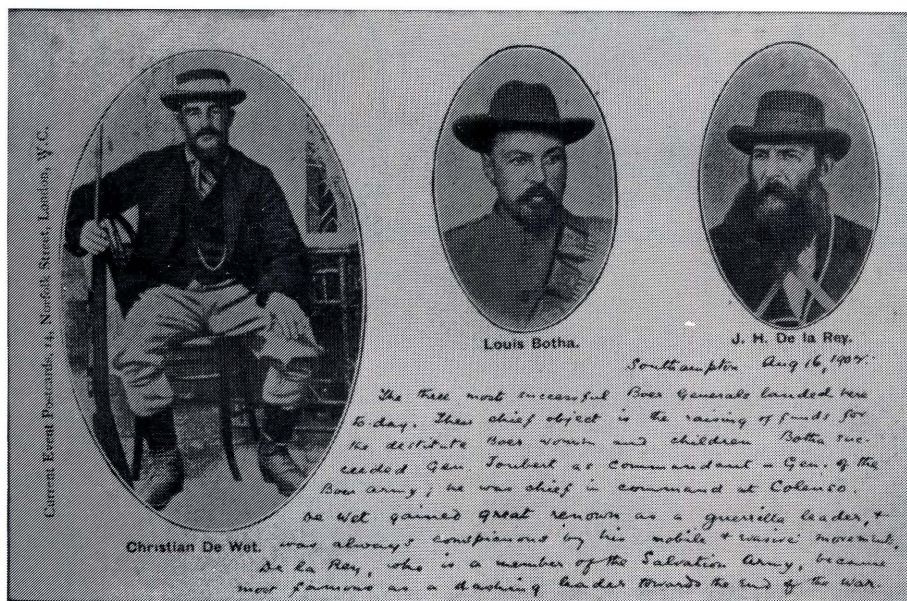 Current Event Postcards, 14, Norfolk Street, London, W.C.
Louis Botha.
J. H. De la Rey.
Southampton Aug 16, 1902.
The three most successful Boer Generals landed here
to-day. Their chief object is the raising of funds for
the destitute Boer women and children Botha suc-
ceeded Gen. Joubert as Commandant-Gen. of the
Boer army; he was chief in command at Colenso.
De Wet gained great renown as a guerrilla leader, +
Christian De Wet.
was always conspicuous by his mobile + evasive movement.
De la Rey, who is a member of the Salvation Army, became
most famous as a dashing leader towards the end of the war.